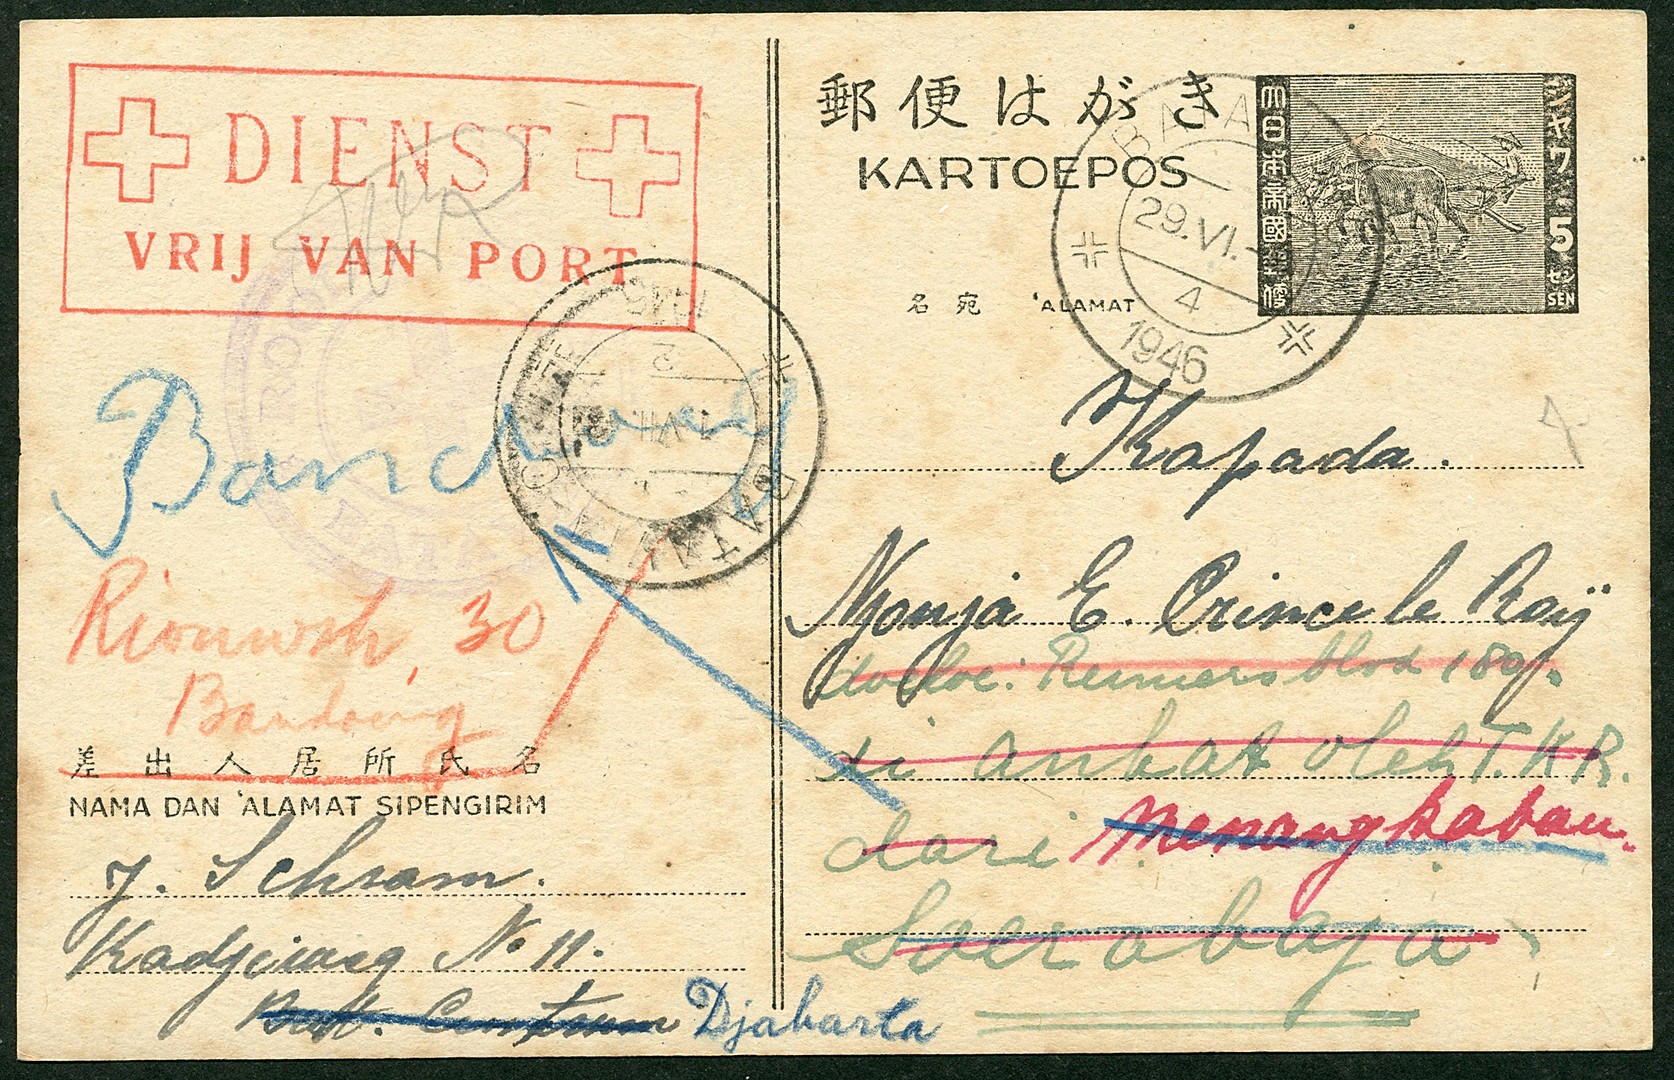 DIENST
VRIJ VAN PORT
郵便はがき
KARTOEPOS
名宛 'ALAMAT
大日本帝國郵便
ジャワ
5
セン
SEN
29.VI.
4
1946
BATAVIA-CENTRUM
2
1946
ROOD
BATAVIA
Bandoeng
30
Bandoeng
差出人居所氏名
NAMA DAN 'ALAMAT SIPENGIRIM
J. Schram.
No 11.
Bat. Centrum Djakarta
Kapada.
Njonja E. Prince le Roij
doeloe: Reiniersz blvd 180.
di ankat oleh T.K.R.
dari Menangkabau.
Soerabaja